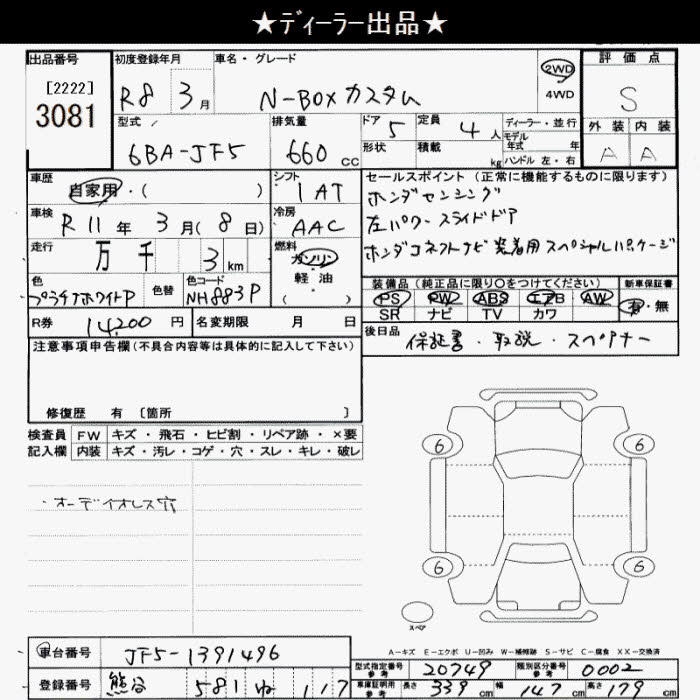 ★ディーラー出品★
出品番号 初度登録年月 車名・グレード 評価点
[2222] R8 3月 N-BOXカスタム 2WD 4WD S
3081
型式 排気量 ドア 定員 ディーラー・並行 外装 内装
6BA-JF5 660cc 5 4人 モデル年式 年 A A
形状 積載 kg ハンドル 左・右
車歴 シフト セールスポイント (正常に機能するものに限ります)
自家用・( ) 1AT ホンダセンシング
車検 冷房 左パワースライドドア
R11年3月(8日) AAC
走行 燃料 ホンダコネクトナビ装着用スペシャルパッケージ
万千 3km ガソリン
軽油
色 色替 色コード ( ) 装備品 (純正品に限り○をつけてください) 新車保証書
プラチナホワイトP NH883P PS PW ABS エアB AW 有・無
SR ナビ TV カワ
R券 14200円 名変期限 月 日 後日品
保証書・取説・スペアキー
注意事項申告欄 (不具合内容等は具体的に記入して下さい)
修復歴 有 [箇所 ]
検査員 FW キズ・飛石・ヒビ割・リペア跡・×要
記入欄 内装 キズ・汚レ・コゲ・穴・スレ・キレ・破レ
6 6
・オーディオレス穴
6 6
スペア
A-キズ E-エクボ U-凹み W-補修跡 S-サビ C-腐食 XX-交換済
車台番号 JF5-1391496
型式指定番号 参考 20749 類別区分番号 参考 0002
登録番号 熊谷 581 ね 117
車庫証明用 参考 長さ 339cm 幅 147cm 高さ 179cm